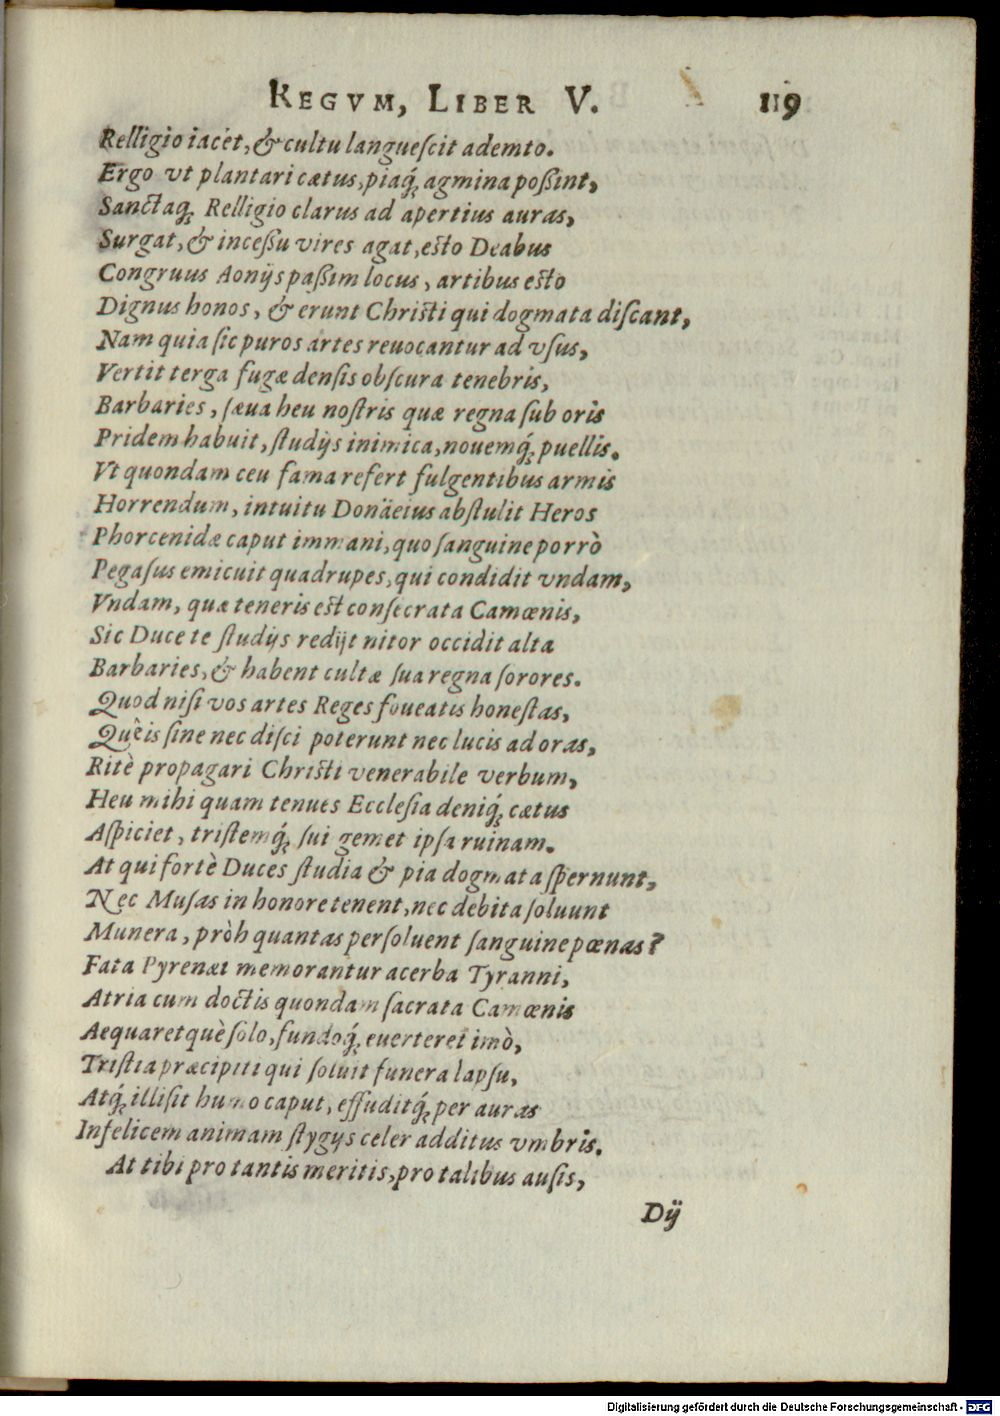 REGVM, LIBER V. 119
Relligio iacet, & cultu languescit ademto.
Ergo vt plantari cætus, piaq́; agmina poßint,
Sanctaq; Relligio clarus ad apertius auras,
Surgat, & incessu vires agat, esto Deabus
Congruus Aonijs paßim locus, artibus esto
Dignus honos, & erunt Christi qui dogmata discant,
Nam quia sic puros artes reuocantur ad vsus,
Vertit terga fugæ densis obscura tenebris,
Barbaries, sæua heu nostris quæ regna sub oris
Pridem habuit, studijs inimica, nouemq́; puellis.
Vt quondam ceu fama refert fulgentibus armis
Horrendum, intuitu Donäeius abstulit Heros
Phorcenidæ caput immani, quo sanguine porrò
Pegasus emicuit quadrupes, qui condidit vndam,
Vndam, quæ teneris est consecrata Camœnis,
Sic Duce te studijs redijt nitor occidit alta
Barbaries, & habent cultæ sua regna sorores.
Quod nisi vos artes Reges foueatis honestas,
Quèis sine nec disci poterunt nec lucis ad oras,
Ritè propagari Christi venerabile verbum,
Heu mihi quam tenues Ecclesia deniq́; cætus
Aspiciet, tristemq́; sui gemet ipsa ruinam.
At qui fortè Duces studia & pia dogmata spernunt,
Nec Musas in honore tenent, nec debita soluunt
Munera, pròh quantas persoluent sanguine pœnas?
Fata Pyrenæi memorantur acerba Tyranni,
Atria cum doctis quondam sacrata Camœnis
Aequaretquè solo, fundoq́; euerteret imò,
Tristia præcipiti qui soluit funera lapsu,
Atq́; illisit humo caput, effuditq́; per auras
Infelicem animam stygijs celer additus vmbris.
At tibi pro tantis meritis, pro talibus ausis,
Dij
Digitalisierung gefördert durch die Deutsche Forschungsgemeinschaft - DFG